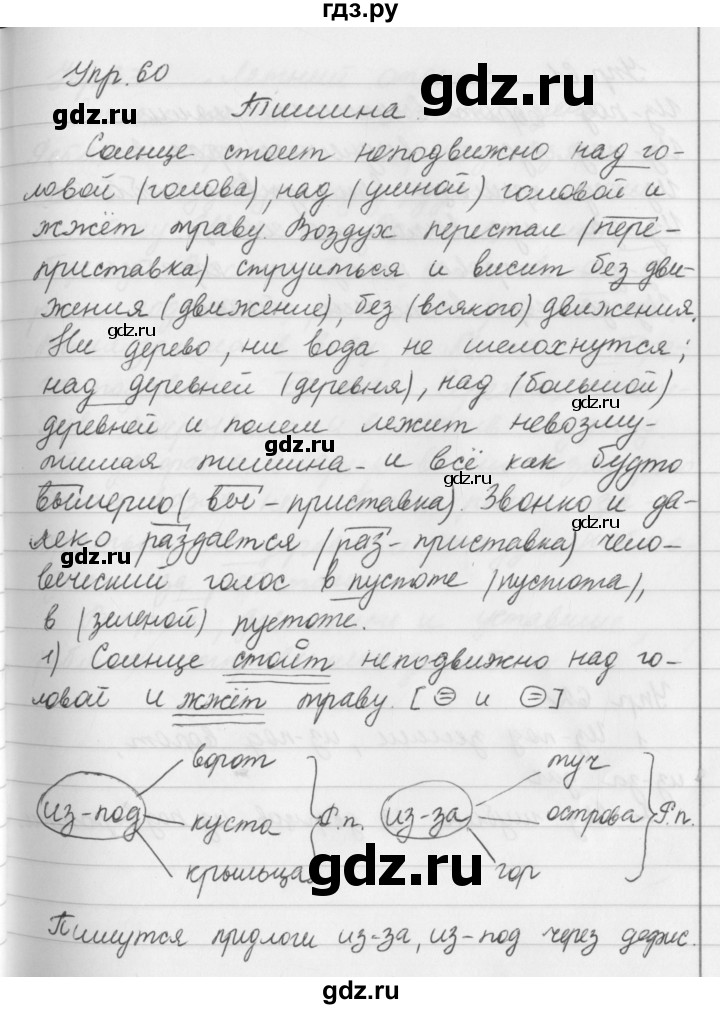 гдз.ру
Упр. 60
Тишина.
Солнце стоит неподвижно над го-
ловой (голова), над (умной) головой и
жжёт траву. Воздух перестал (пере-
приставка) струиться и висит без дви-
жения (движение), без (всякого) движения.
Ни дерево, ни вода не шелохнутся;
над деревней (деревня), над (большой)
деревней и полем лежит невозму-
тимая тишина - и всё как будто
вымерло (вы - приставка). Звонко и да-
леко раздаётся (раз - приставка) чело-
веческий голос в пустоте (пустота),
в (зеленой) пустоте.
1) Солнце стоит неподвижно над го-
ловой и жжёт траву. [ и ]
из-под
ворот
куста
крыльца
Р.п.
из-за
туч
острова
гор
Р.п.
Пишутся предлоги из-за, из-под через дефис.
gdz.ru
gdz.ru
gdz.ru
gdz.ru
gdz.ru
gdz.ru
gdz.ru
gdz.ru
gdz.ru
gdz.ru
gdz.ru
gdz.ru
gdz.ru
gdz.ru